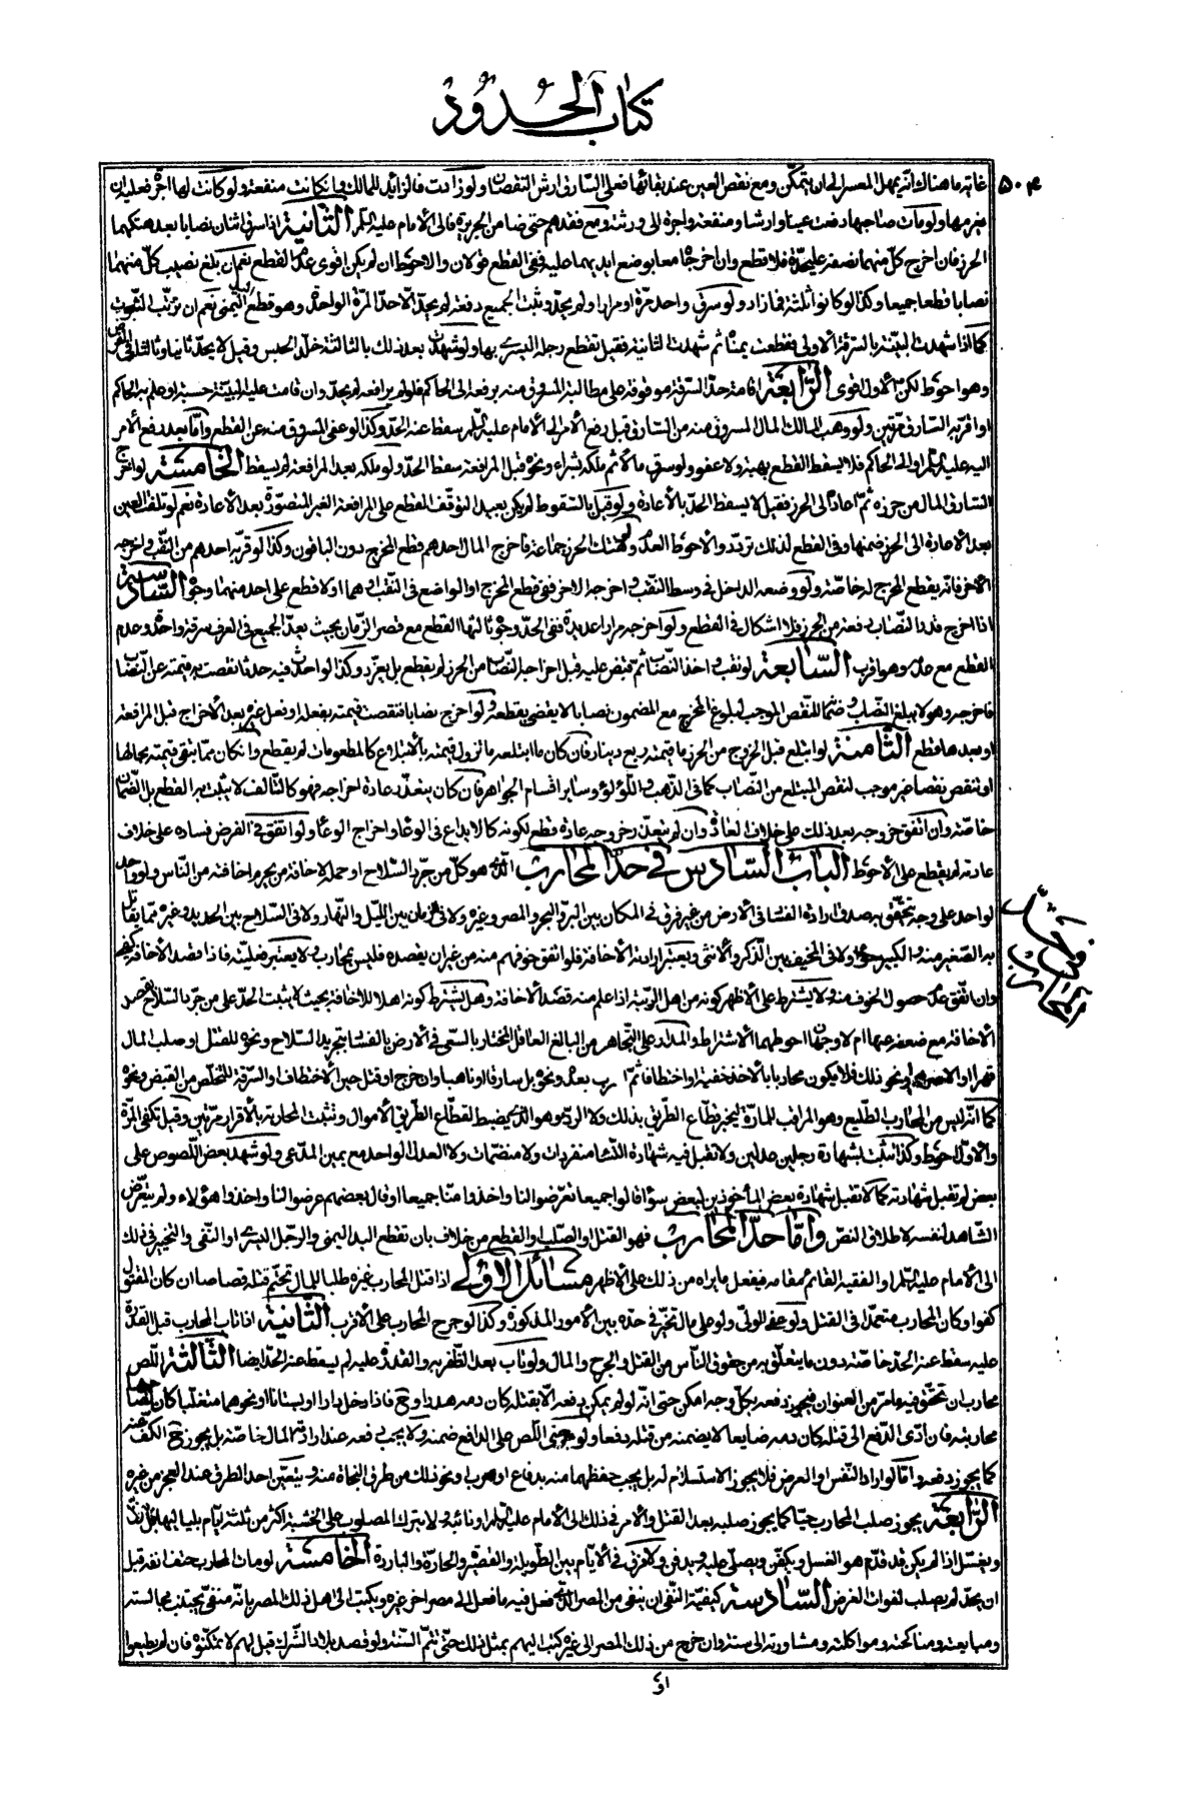 كتاب الحدود
۵۰۴
غايته ما هناك انه يمهل المعسر الى ان يتمكن ومع نقص العين عند بقائها فعلى السارق ارش النقصان ولو زادت فالزائد للمالك وان كانت منفعة ولو كانت لها اجرة فعليه ان
يغرمها ولو مات صاحبها دفعت عينا وارشا ومنفعة واجرة الى ورثته ومع فقدهم حتى ضامن الجريرة فالى الامام عليه السلم الثانية اذا سرق اثنان نصابا بعد هتكهما
الحرز فان اخرج كل منهما نصفه عليحدة فلا قطع وان اخرجاه معا بوضع ايديهما عليه ففي القطع قولان والاحوط ان لم يكن اقوى عدم القطع نعم ان بلغ نصيب كل منهما
نصابا قطعا جميعا وكذا لو كانوا ثلثة فما زاد ولو سرق واحد مرة او مرارا ولم يحد وثبت الجميع دفعة لم يحد الا حد المرة الواحدة وهو قطع اليمنى نعم ان ترتب الثبوت
كما اذا شهدت البينة بالسرقة الاولى فقطعت يمناه ثم شهدت الثانية فقيل تقطع رجله اليسرى بها ولو شهدت بعد ذلك بالثالثة خلد الحبس وقيل لا يحد ثانيا وثالثا في الفرض
وهو احوط لكن الاول اقوى الرابعة اقامة حد السرقة موقوفة على مطالبة المسروق منه برفعه الى الحاكم فلو لم يرافعه لم يحد وان قامت عليه البينة حسبة او علم به الحاكم
او اقر به السارق مرتين ولو وهب المالك المال المسروق منه من السارق قبل رفع الامر الى الامام عليه السلم سقط عنه الحد وكذا لو عفى المسروق منه عن القطع واما بعد رفع الامر
اليه عليه السلم او الى الحاكم فلا يسقط القطع بهبة ولا عفو ولو سرق مالا ثم ملكه بشراء ونحوه قبل المرافعة سقط الحد ولو ملكه بعد المرافعة لم يسقط الخامسة لو اخرج
السارق المال من حرزه ثم اعاده الى الحرز فقيل لا يسقط الحد بالاعادة ولو قيل بالسقوط لم يكن بعيدا لتوقف القطع على المرافعة الغير المتصورة بعد الاعادة نعم لو تلفت العين
بعد الاعادة الى الحرز ضمنها وفي القطع لذلك تردد والاحوط العدم ولو هتك الحرز جماعة فاخرج المال احدهم قطع المخرج دون الباقون وكذا لو قربه احدهم من النقب واخرجه
الاخر فانه يقطع المخرج له خاصة ولو وضعه الداخل في وسط النقب واخرجه الاخر ففي قطع المخرج او الواضع في النقب او هما او لا قطع على احد منهما وجوه السادسة
اذا اخرج قدر النصاب دفعة من الحرز فلا اشكال في القطع ولو اخرجه مرارا عديدة ففي الحد وجوه ثالثها القطع مع قصر الزمان بحيث يعد الجميع في العرف سرقة واحدة وعدم
القطع مع عدمه وهو اقرب السابعة لو نقب واخذ النصاب ثم قبض عليه قبل اخراجه النصاب من الحرز لم يقطع بل يعزر وكذا لو احدث فيه حدثا نقصت به قيمته عن النصاب
فاخرجه وهو لا يبلغ النصاب
او بعدها قطع الثامنة لو ابتلع قبل الخروج من الحرز ما قيمته ربع دينار فان كان ما ابتلعه مما تزول قيمته بالابتلاع كالمطعومات لم يقطع وان كان مما تبقى قيمته بحالها
او تنقص نقصا غير موجب لنقص المبتلع من النصاب كما في الذهب واللؤلؤ وسائر اقسام الجواهر فان كان يتعذر عادة اخراجه فهو كالتالف لا يثبت به القطع بل الضمان
خاصة وان اتفق خروجه بعد ذلك على خلاف العادة وان لم يتعذر خروجه عادة قطع لكونه كالايداع في الوعاء واخراج الوعاء ولو اتفق في الفرض فساده على خلاف
عادته لم يقطع على الاحوط الباب السادس في حد المحارب الذي هو كل من جرد السلاح او حمله لاخافة من يحرم اخافته من الناس ولو واحد
لواحد على وجه يتحقق به صدق ارادة الفساد في الارض من غير فرق في المكان بين البر والبحر والمصر وغيره ولا في الزمان بين الليل والنهار ولا في السلاح بين الحديد وغيره مما يقاتل
وان اتفق عدم حصول الخوف منه ولا يشترط على الاظهر كونه من اهل الريبة اذا علم منه قصد الاخافة وهل يشترط كونه اهلا للاخافة بحيث لا يثبت الحد على من جرد السلاح بقصد
الاخافة مع ضعفه عنها ام لا وجهان احوطهما الاشتراط والمدار على التجاهر من البالغ العاقل المختار بالسعي في الارض بالفساد بتجريد السلاح ونحوه للقتل او سلب المال
كما انه ليس من المحارب الطليع وهو المراقب للمارة ليخبر قطاع الطريق بذلك ولا الردء وهو الذي يضبط لقطاع الطريق الاموال وتثبت المحاربة بالاقرار مرتين وقيل تكفي المرة
والاول احوط وكذا تثبت بشهادة رجلين عدلين ولا تقبل فيه شهادة النساء منفردات ولا منضمات ولا العدل الواحد مع يمين المدعي ولو شهد بعض اللصوص على
بعض لم تقبل شهادته كما لا تقبل شهادة بعض المأخوذين لبعض سواء قالوا جميعا تعرضوا لنا واخذوا منا جميعا او قال بعضهم عرضوا لنا واخذوا هؤلاء ولم يتعرض
الشاهد لنفسه لاطلاق النص واما حد المحارب فهو القتل او الصلب او القطع من خلاف بان تقطع اليد اليمنى والرجل اليسرى او النفي والتخيير في ذلك
الى الامام عليه السلم او الفقيه القائم مقامه فيفعل ما يراه من ذلك على الاظهر مسائل الاولى اذا قتل المحارب غيره طلبا للمال تحتم قتله قصاصا ان كان المقتول
كفوا وكان المحارب متعمدا في القتل ولو عفى الولي ولو على مال تخير في حده بين الامور المذكورة وكذا لو جرح المحارب على الاقرب الثانية اذا تاب المحارب قبل القدرة
عليه سقط عنه الحد خاصة دون ما يتعلق به من حقوق الناس من القتل والجرح والمال ولو تاب بعد الظفر به والقدرة عليه لم يسقط عنه الحد ايضا الثالثة اللص
محارب ان تحقق فيه ما مر من العنوان فيجوز دفعه بكل وجه امكن حتى انه لو لم يمكن دفعه الا بقتله كان دمه هدرا وح فاذا دخل دارا او بستانا او نحوهما متغلبا كان لصاحبها
محاربته فان ادى الدفع الى قتله كان دمه ضايعا لا يضمنه من قتله دفعا ولو جنى اللص على الدافع ضمنه ولا يجب دفعه عند ارادة المال خاصة بل يجوز ح الكف عنه
كما يجوز دفعه واما لو اراد النفس او العرض فلا يجوز الاستسلام له بل يجب حفظهما منه بدفاع او هرب ونحو ذلك من طرق النجاة منه ويتعين احد الطرق عند العجز من غيره
الرابعة يجوز صلب المحارب حيا كما يجوز صلبه بعد القتل والامر في ذلك الى الامام عليه السلم او نائبه ولا يترك المصلوب على الخشبة اكثر من ثلثة ايام بلياليها
ويغسل اذا لم يكن قد قدم هو الغسل ويكفن ويصلى عليه ويدفن ولا فرق في الايام بين الطويلة والقصيرة والحارة والباردة الخامسة لو مات المحارب حتف انفه قبل
ان يحد لم يصلب لفوات الغرض السادسة كيفية النفي ان ينفى من المصر الذي فعل فيه ما فعل الى مصر اخر غيره ويكتب الى اهل ذلك المصر بانه منفي يجتنب مجالسته
ومبايعته ومناكحته ومواكلته ومشاورته الى سنة وان خرج من ذلك المصر الى غيره كتب اليهم بمثل ذلك حتى تتم السنة ولو قصد بلاد الشرك قيل لهم لا يمكنوه فان لم يطيعوا
او
في حد
المحارب